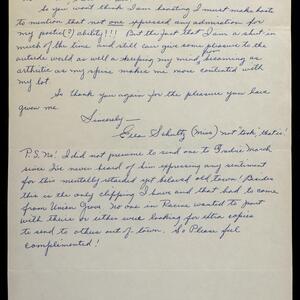 So you won't think I am boasting I must make haste
to mention that not one expressed any admiration for
my poetic(?) ability!!! But the fact that I am a shut in
much of the time and still can give some pleasure to the
outside world as well as keeping my mind becoming as
arthritic as my spine makes me more contented with
my lot.
So thank you again for the pleasure you have
given me.
Sincerely—
Ellen Schultz (Miss) not "took," that is!
P.S. No! I did not presume to send one to Fredric March
since I've never heard of him expressing any sentiment
for this mentally retarded yet beloved old town! Besides
this is the only clipping I have and that had to come
from Union Grove. No one in Racine wanted to part
with theirs or either were looking for extra copies
to send to others out-of-town. So Please feel
complimented!